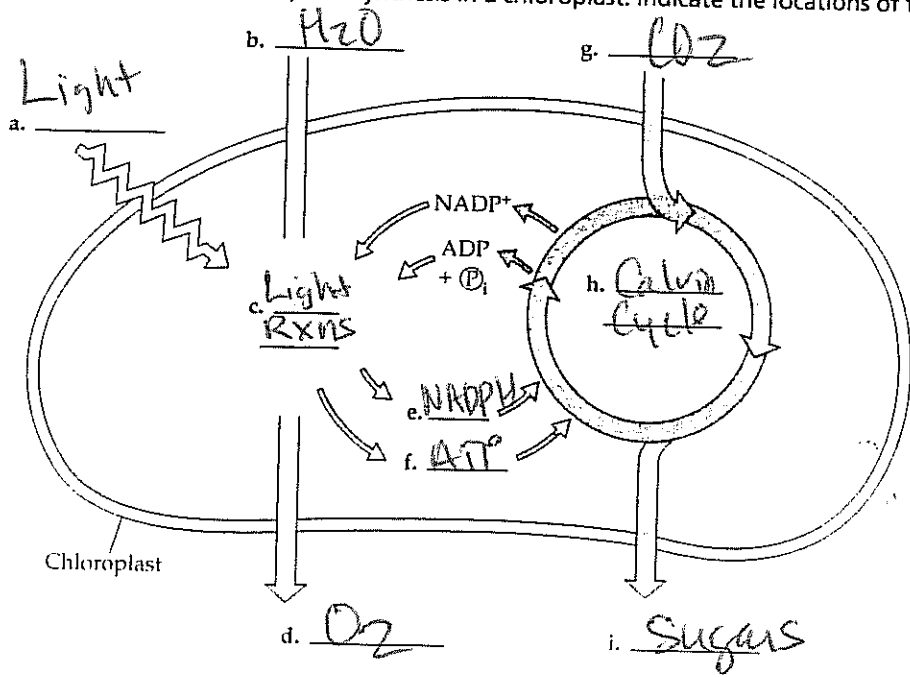 sis in a chloroplast. Indicate the locations of
b. H2O
g. CO2
Light
a.
NADP+
ADP
+ Pi
c. Light
Rxns
h. Calvin
Cycle
e. NADPH
f. ATP
Chloroplast
d. O2
i. Sugars